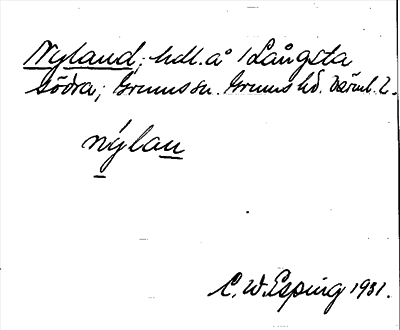 Nyland; hdl. å 1 Långsta
södra; Grums sn. Grums hd. Värml. l.
nýlan
C. W. Esping 1931.